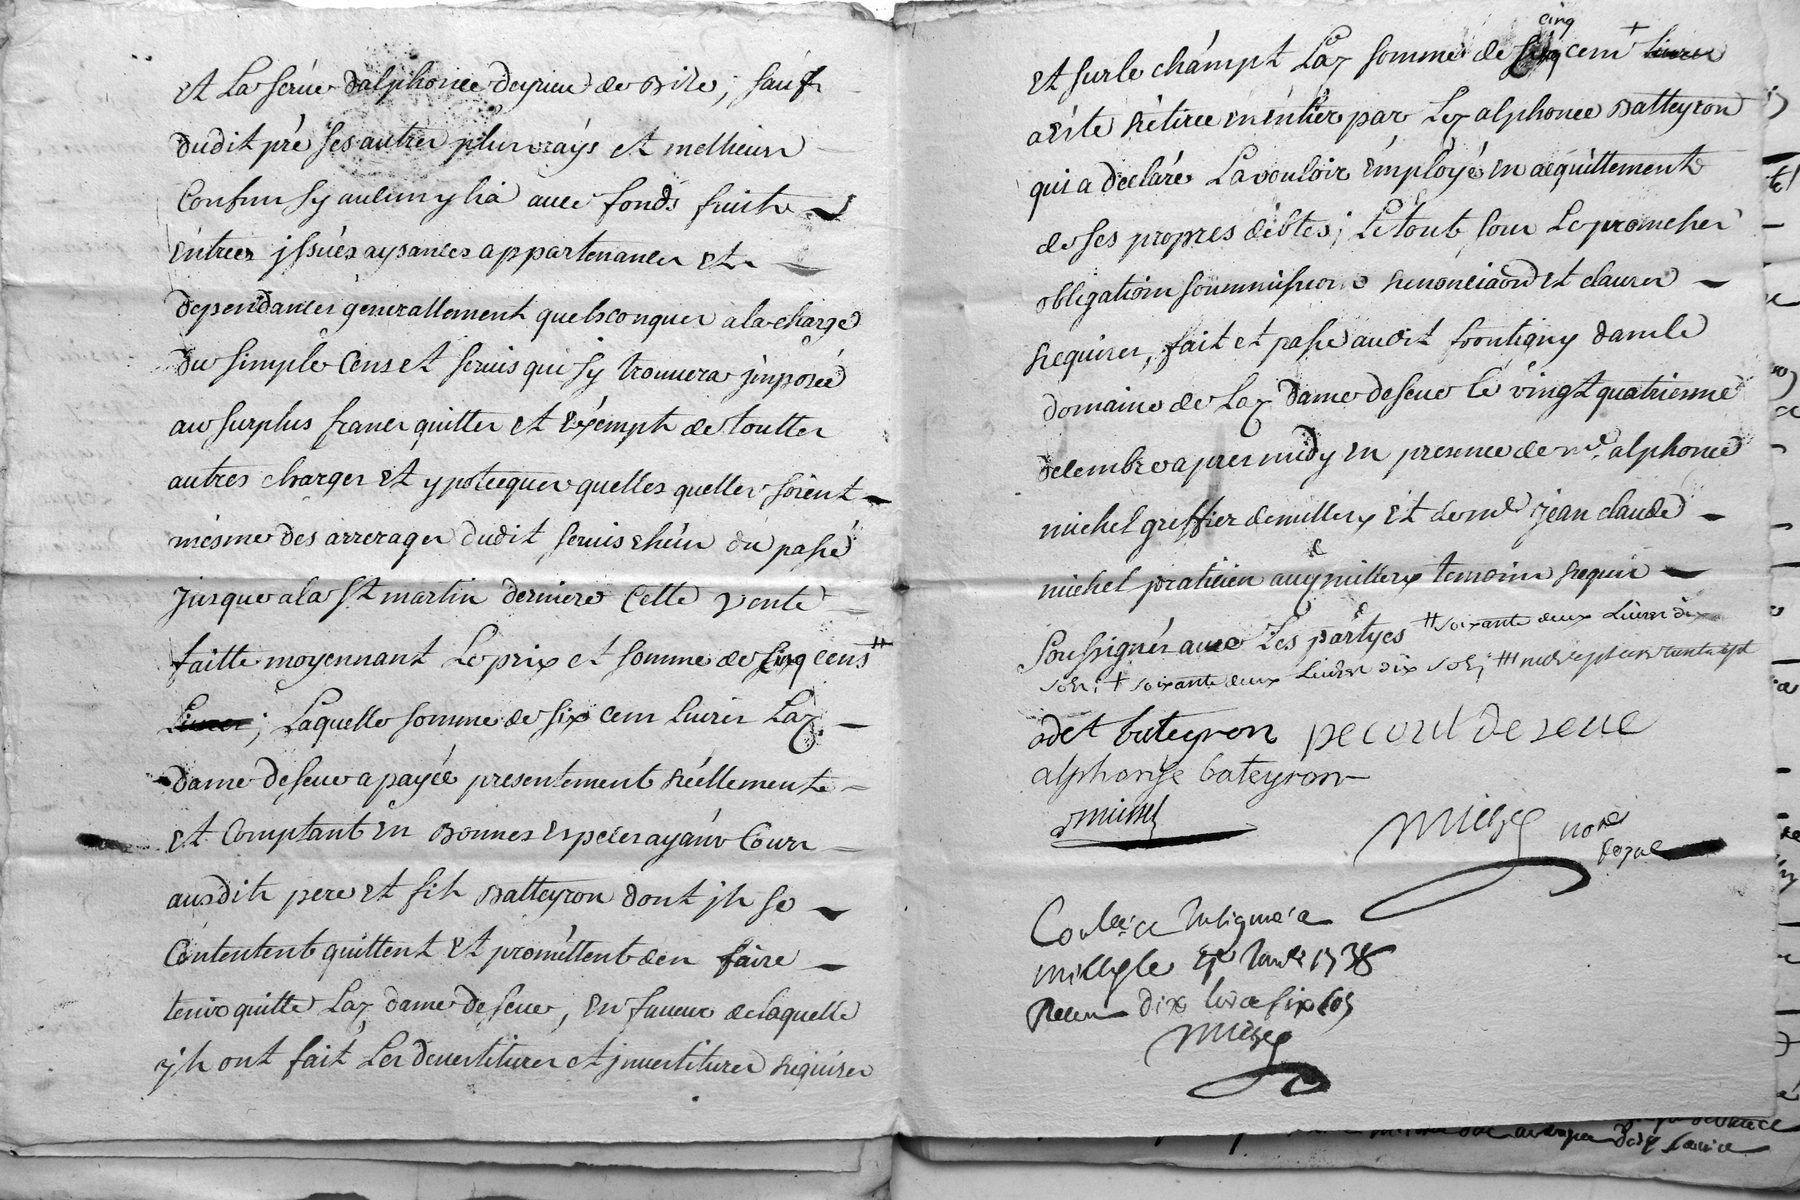 et La serüe dalphonce deyrieu de Bise; sauf
dudit pré ses autres plus vrays et melheurs
Confins sy aulcuns y ha avec fonds fruits
entrées jssües aysances appartenances et
dependances generallement quelsconques a la charge
du simple Cens et servis qui sy trouuera jmposée
au surplus francs quittes et éxempts de touttes
autres charges et ypotecques quelles quelles soient
mésme des arrerages dudit servis échün du passé
Jusques a la St martin derniere Cette vente
faitte moyennant Le prix et somme de cinq cens #
Livres; Laquelle somme de six cens Livres Laz.
dame deseue a payée presentement réellement
et Comptant en Bonnes especes ayants Cours
ausdits pere et fils Batteyron dont jls se
Contentent quittent et prométtent den faire
tenir quitte Laz dame deseue, en faueur de laquelle
jls ont fait Les deuestitures et jnuestitures requises
et sur le chámpt Laz somme de cinq cens + Livres
a esté rétirée en éntier par Lez alphonce Batteyron
qui a declaré La vouloir émployé en acquittement
de ses propres débtes; Le tout sous Les promesses
obligations soummissions renonciaõns et clauses
requises, fait et passé audit frontigny dans le
domaine de Laz dame deseue le vingt quatrieme
decembre apres midy en presence de me. alphonce
michel greffier demillery et de me jean claude
michel praticien auy millery temoins requis
Soussignés auec Les partyes # soixante deux Livres dix
sols; + soixante deux Livres dix sols;
adet bateyron pecoul de seue
alphonse bateyron
michel
Michel nore
Royal
Conllé.
millery le 1738
Receu dix livre six sols
Michel